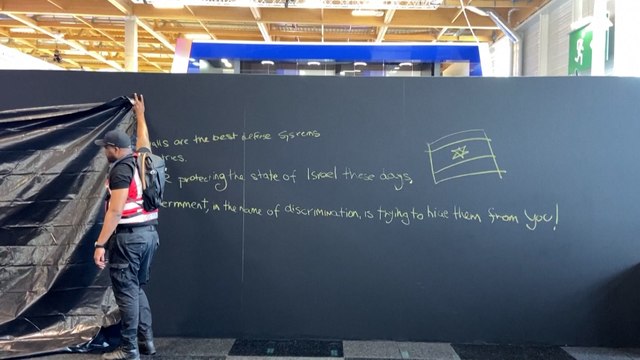 alls are the best defense Systems
ries.
protecting the state of Israel these days,
ernment, in the name of discrimination, is trying to hide them from you!